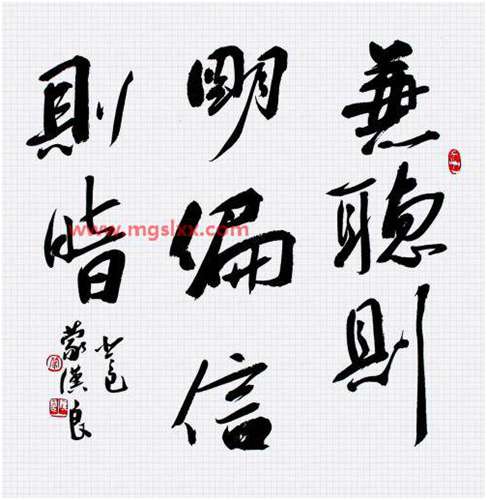 兼聽則
明偏信
則暗
蒙漢良
www.mgslxx.com